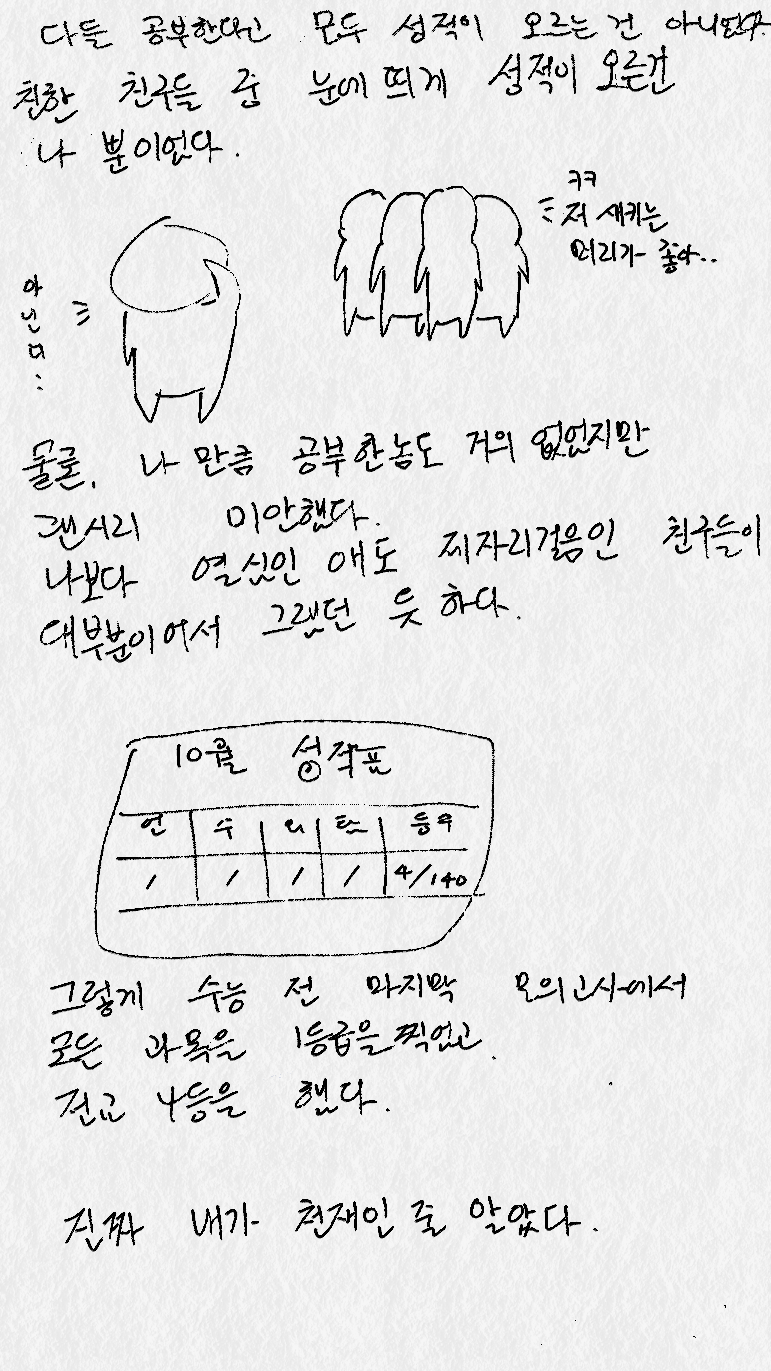 다들 공부한다고 모두 성적이 오르는 건 아니었다.
친한 친구들 중 눈에 띄게 성적이 오른건
나 뿐이었다.
ㅋㅋ
저 새키는
머리가 좋아..
아닌디..
물론, 나 만큼 공부한놈도 거의 없었지만
괜시리 미안했다.
나보다 열심인 애도 제자리걸음인 친구들이
대부분이어서 그랬던 듯 하다.
10월 성적표
언 수 외 탐 등수
1 1 1 1 4/140
그렇게 수능 전 마지막 모의고사에서
모든 과목을 1등급을 찍었고,
전교 4등을 했다.
진짜 내가 천재인 줄 알았다.